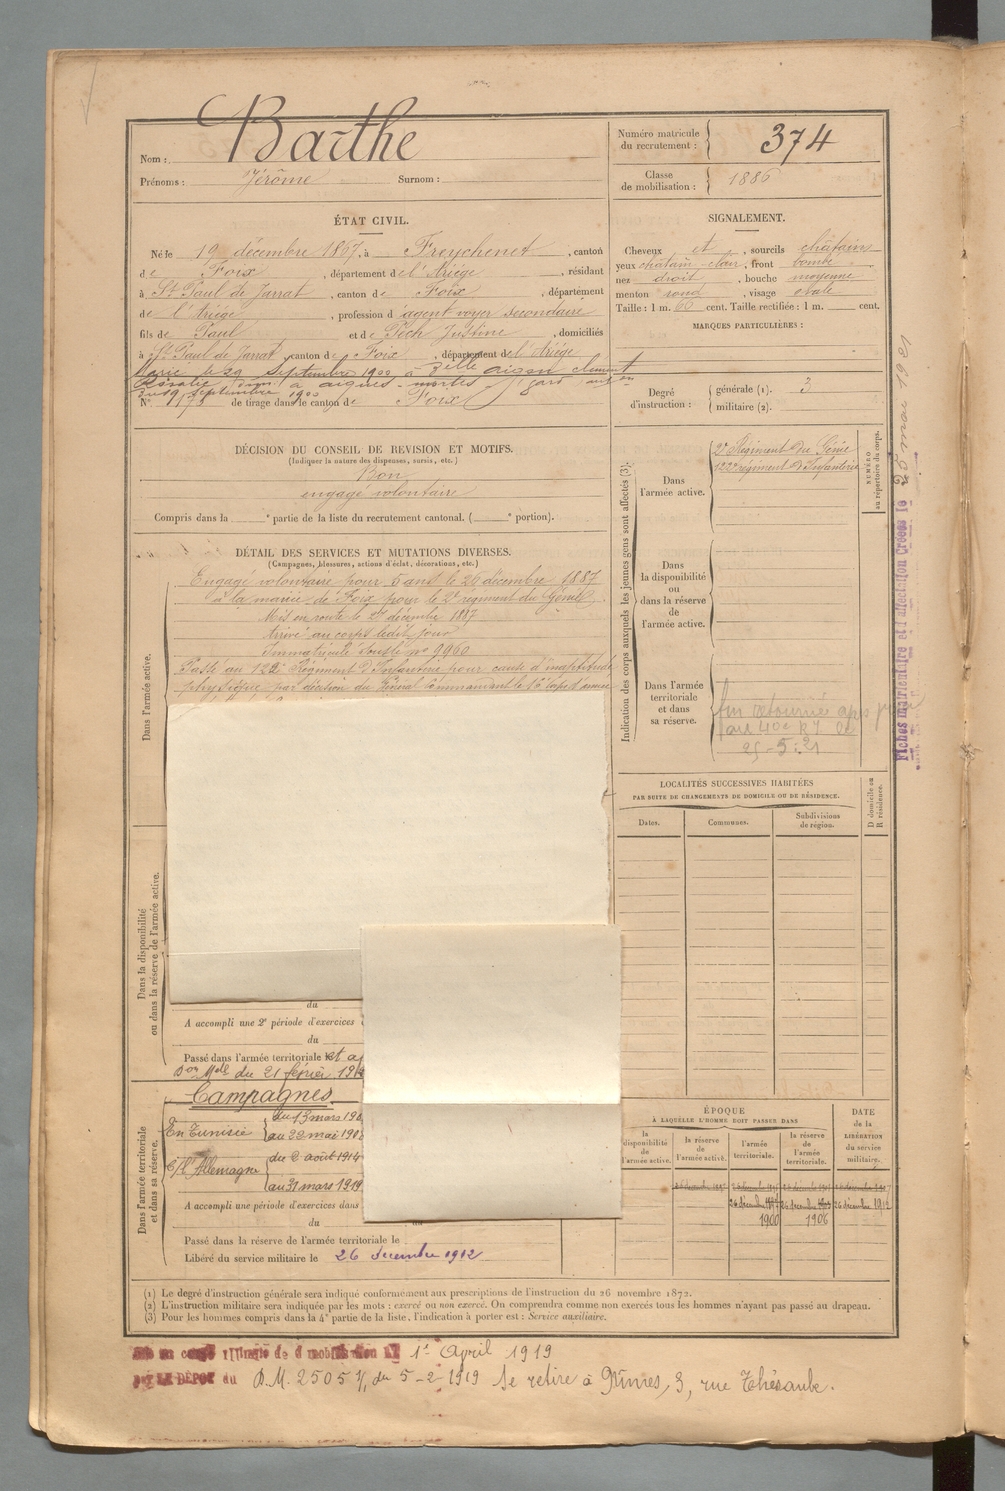 Barthe
Nom :
Prénoms : Jérôme Surnom :
Numéro matricule du recrutement : 374
Classe de mobilisation : 1886
ÉTAT CIVIL.
Né le 19 décembre 1867, à Freychenet, canton
de Foix, département de l'Ariège, résidant
à St Paul de Jarrat, canton de Foix, département
de l'Ariège, profession d'agent voyer secondaire
fils de Paul et de Pech Justine, domiciliés
à St Paul de Jarrat, canton de Foix, département de l'Ariège
Marié le 29 septembre 1900 à Delle aigon clément
Rosalie à aigues-mortes gard
du 19 septembre 1900
N° 173 de tirage dans le canton de Foix
SIGNALEMENT.
Cheveux et, sourcils châtains
yeux châtain-clair, front bombé
nez droit, bouche moyenne
menton rond, visage ovale
Taille : 1 m. 66 cent. Taille rectifiée : 1 m. cent.
MARQUES PARTICULIÈRES :
Degré d'instruction : générale (1). 3
militaire (2).
DÉCISION DU CONSEIL DE REVISION ET MOTIFS.
(Indiquer la nature des dispenses, sursis, etc.)
Bon
engagé volontaire
Compris dans la e partie de la liste du recrutement cantonal. ( e portion).
DÉTAIL DES SERVICES ET MUTATIONS DIVERSES.
(Campagnes, blessures, actions d'éclat, décorations, etc.)
Dans l'armée active.
Engagé volontaire pour 5 ans le 26 décembre 1887
à la mairie de Foix pour le 2e régiment du Génie.
Mis en route le décembre 1887
Arrivé au corps ledit jour
Immatriculé sous le n° 9960
Passé au 122e Régiment d'Infanterie pour cause d'inaptitude
physique par décision du Général Commandant le 16e Corps d'armée
Dans la disponibilité ou dans la réserve de l'armée active.
du
A accompli une 2e période d'exercices
du
Passé dans l'armée territoriale
du 21 février
Dans l'armée territoriale et dans sa réserve.
Campagnes
En Tunisie
du 13 mars
au 22 mai
C/ l'Allemagne
du 2 août 1914
au 31 mars 1919
A accompli une période d'exercices dans
du
Passé dans la réserve de l'armée territoriale le
Libéré du service militaire le 26 décembre 1912
Indication des corps auxquels les jeunes gens sont affectés (3).
NUMÉRO au répertoire du corps.
Dans l'armée active.
2e Régiment du Génie
122e régiment d'Infanterie
Dans la disponibilité ou dans la réserve de l'armée active.
Dans l'armée territoriale et dans sa réserve.
retournée
au 40e RI le
25-5-21
Fiches matriculaire et d'affectation Créées le 25 mars 1921
LOCALITÉS SUCCESSIVES HABITÉES
PAR SUITE DE CHANGEMENTS DE DOMICILE OU DE RÉSIDENCE.
Dates. Communes. Subdivisions de région. D domicile ou R résidence.
ÉPOQUE
À LAQUELLE L'HOMME DOIT PASSER DANS
la disponibilité de l'armée active.
la réserve de l'armée active.
l'armée territoriale.
la réserve de l'armée territoriale.
DATE de la LIBÉRATION du service militaire.
26 décembre 1912
1900 1906
(1) Le degré d'instruction générale sera indiqué conformément aux prescriptions de l'instruction du 26 novembre 1872.
(2) L'instruction militaire sera indiquée par les mots : exercé ou non exercé. On comprendra comme non exercés tous les hommes n'ayant pas passé au drapeau.
(3) Pour les hommes compris dans la 4e partie de la liste, l'indication à porter est : Service auxiliaire.
Mis en congé illimité de démobilisation le 1er April 1919
par LE DÉPOT du D.M. 2505 du 5-2-1919 Se retire à Nîmes, 3, rue